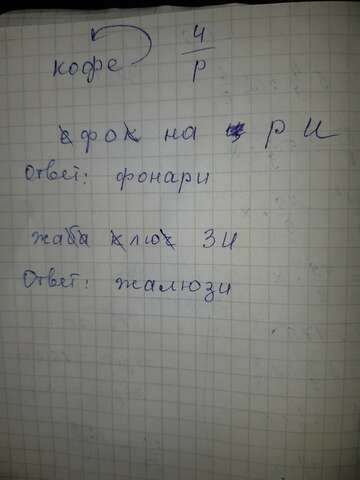 кофе и/р
ефок на р и
Ответ: фонари
жаба клюк зи
Ответ: жалюзи